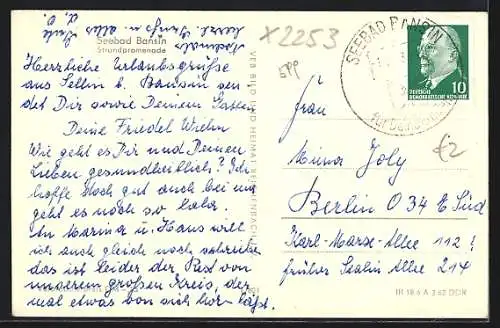 Nochmals
herzl. Grüße alles
Gute
Seebad Bansin
Strandpromenade
Herrliche Urlaubsgrüße
aus Sellin b. Bansin sen
det Dir sowie Deinem Gatten
Deine Friedel Wiehn
Wie geht es Dir und Deinen
Lieben gesundheitlich? Ich
hoffe noch gut auch bei mir
geht es noch so lala.
An Marina u. Hans will
ich auch gleich noch schreiben
das ist leider der Rest von
unserem großen Kreis, der
mal etwas von sich hören läßt.
VEB BILD UND HEIMAT REICHENBACH
X2253
SEEBAD BANSIN
10
DEUTSCHE
DEMOKRATISCHE REPUBLIK
€2
Frau
Minna Joly
Berlin O 34 E Süd
Karl-Marx-Allee 112 !
früher Stalin Allee 214
III 18 6 A 2 62 DDR